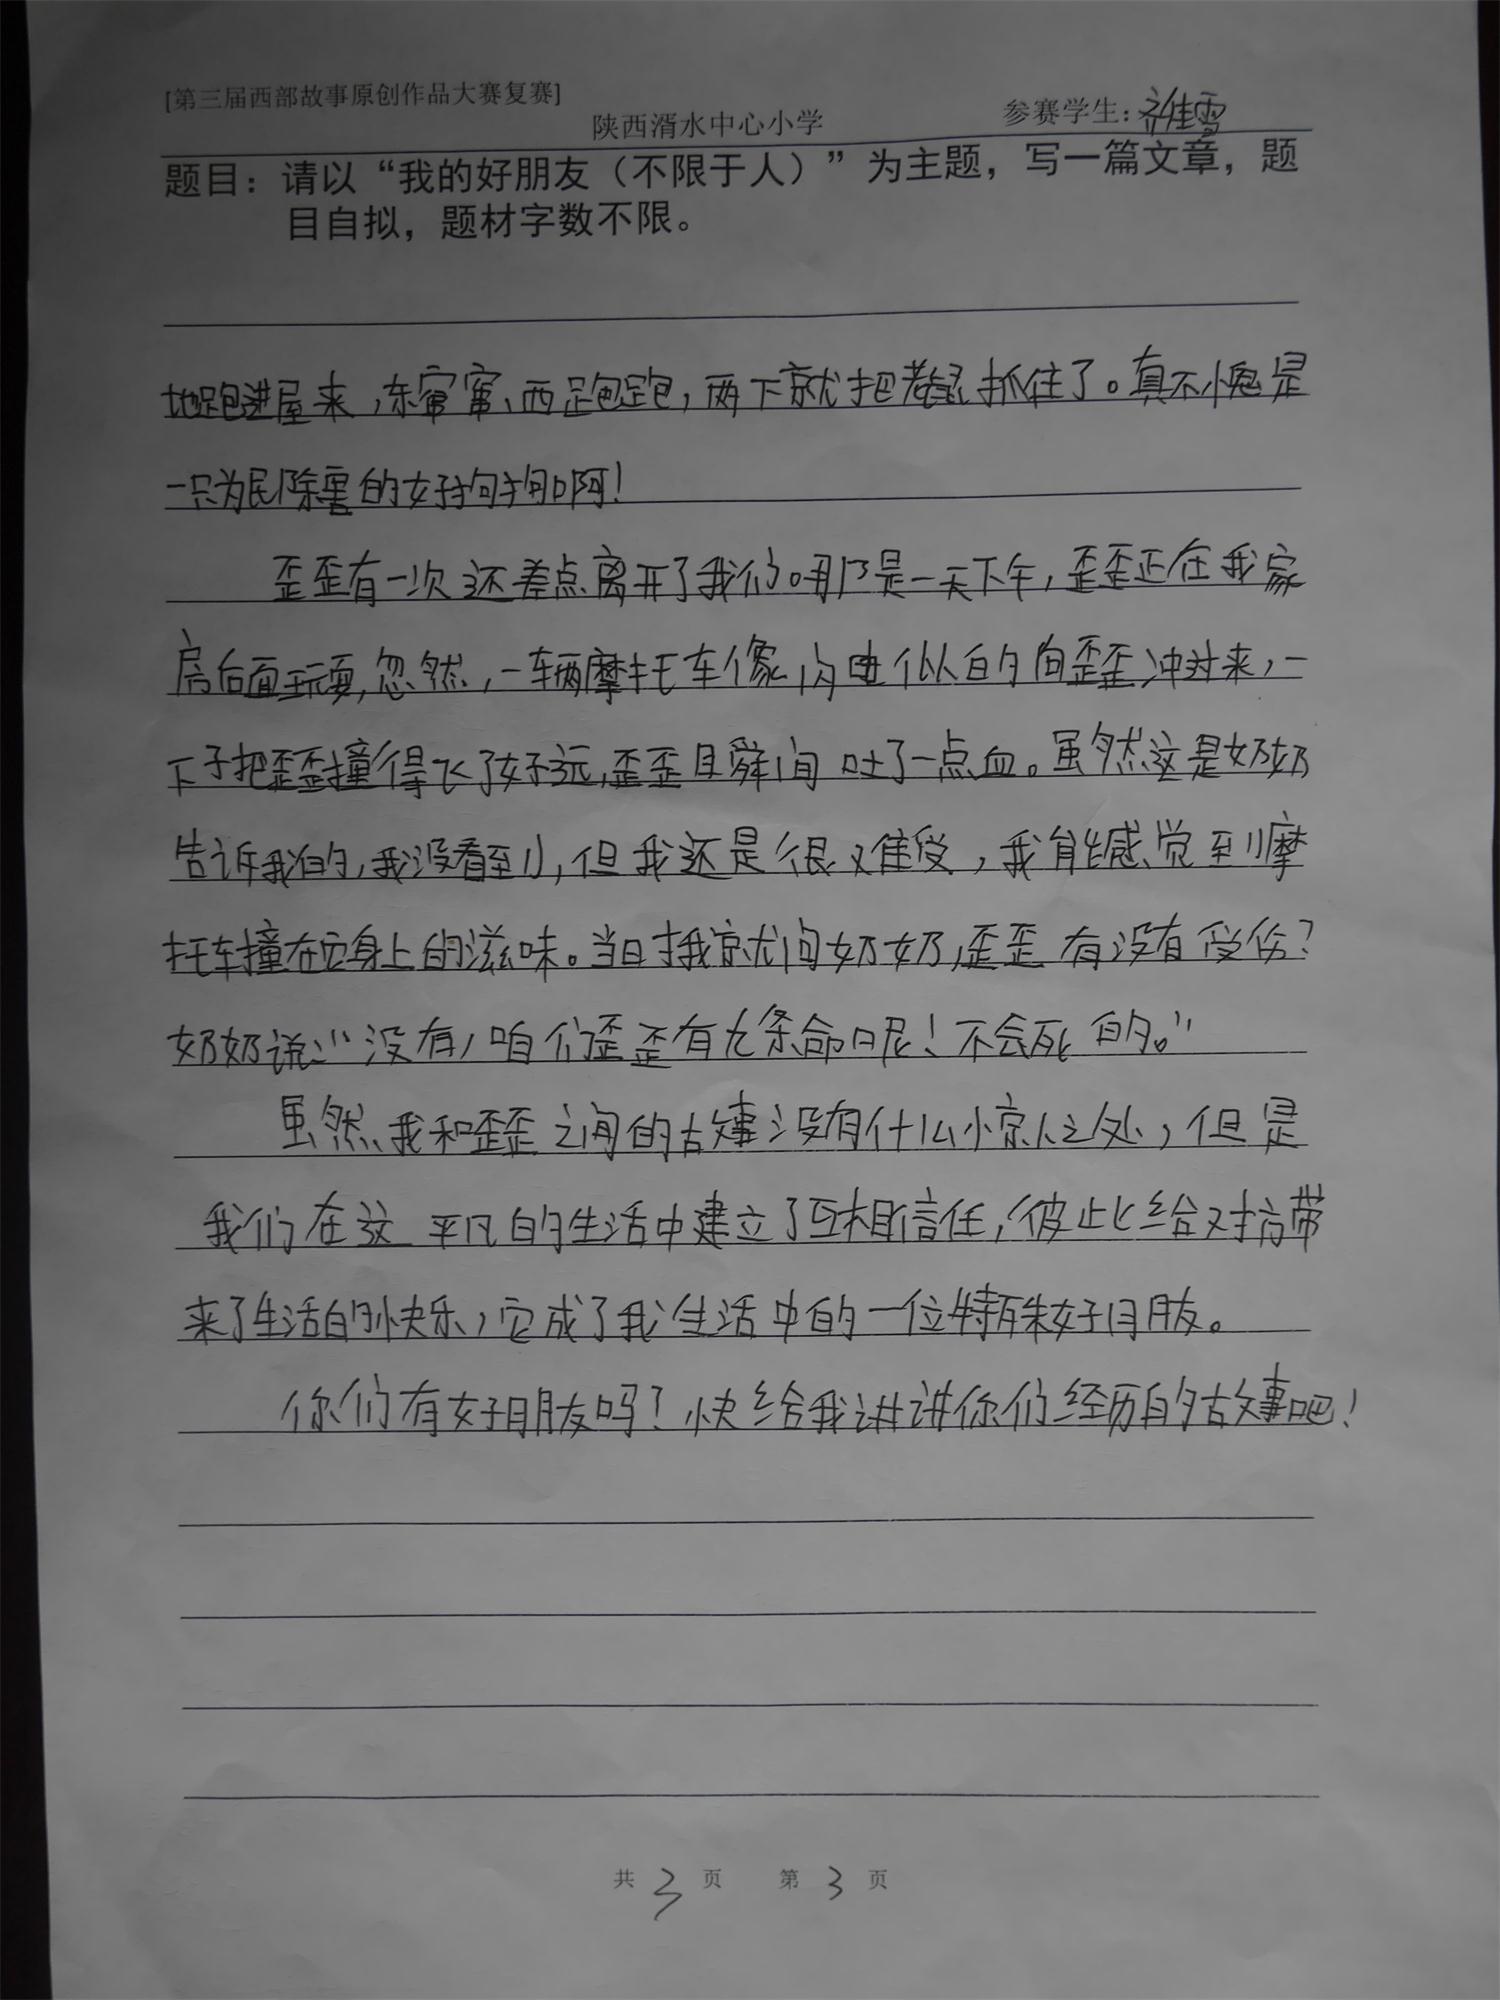 [第三届西部故事原创作品大赛复赛]
陕西湑水中心小学
参赛学生：齐佳雪
题目：请以“我的好朋友（不限于人）”为主题，写一篇文章，题
目自拟，题材字数不限。
地跑进屋来，东窜窜、西跑跑，两下就把老鼠抓住了。真不愧是
一只为民除害的好狗狗啊！
歪歪有一次还差点离开了我们。那是一天下午，歪歪正在我家
房后面玩耍，忽然，一辆摩托车像闪电似的向歪歪冲过来，一
下子把歪歪撞得飞了好远，歪歪瞬间吐了一点血。虽然这是奶奶
告诉我的，我没看到，但我还是很难受，我能感觉到摩
托车撞在它身上的滋味。当时我就问奶奶，歪歪有没有受伤？
奶奶说：“没有，咱们歪歪有九条命呢！不会死的。”
虽然我和歪歪之间的故事没有什么惊人之处，但是
我们在这平凡的生活中建立了互相信任，彼此给对方带
来了生活的快乐，它成了我生活中的一位特殊好朋友。
你们有好朋友吗？快给我讲讲你们经历的故事吧！
共3页 第3页